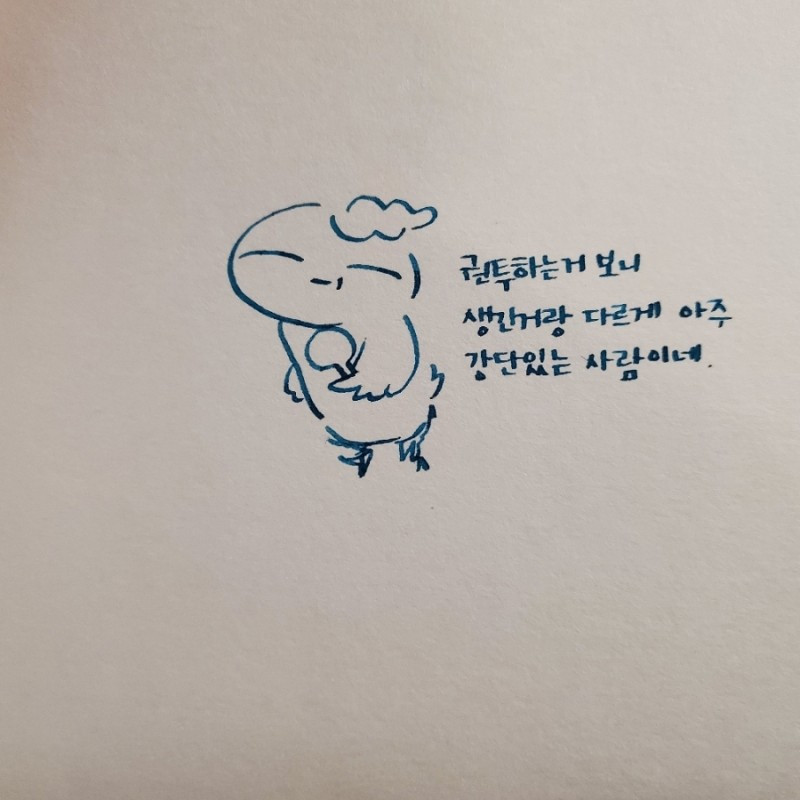 권투하는거 보니
생긴거랑 다르게 아주
강단있는 사람이네.